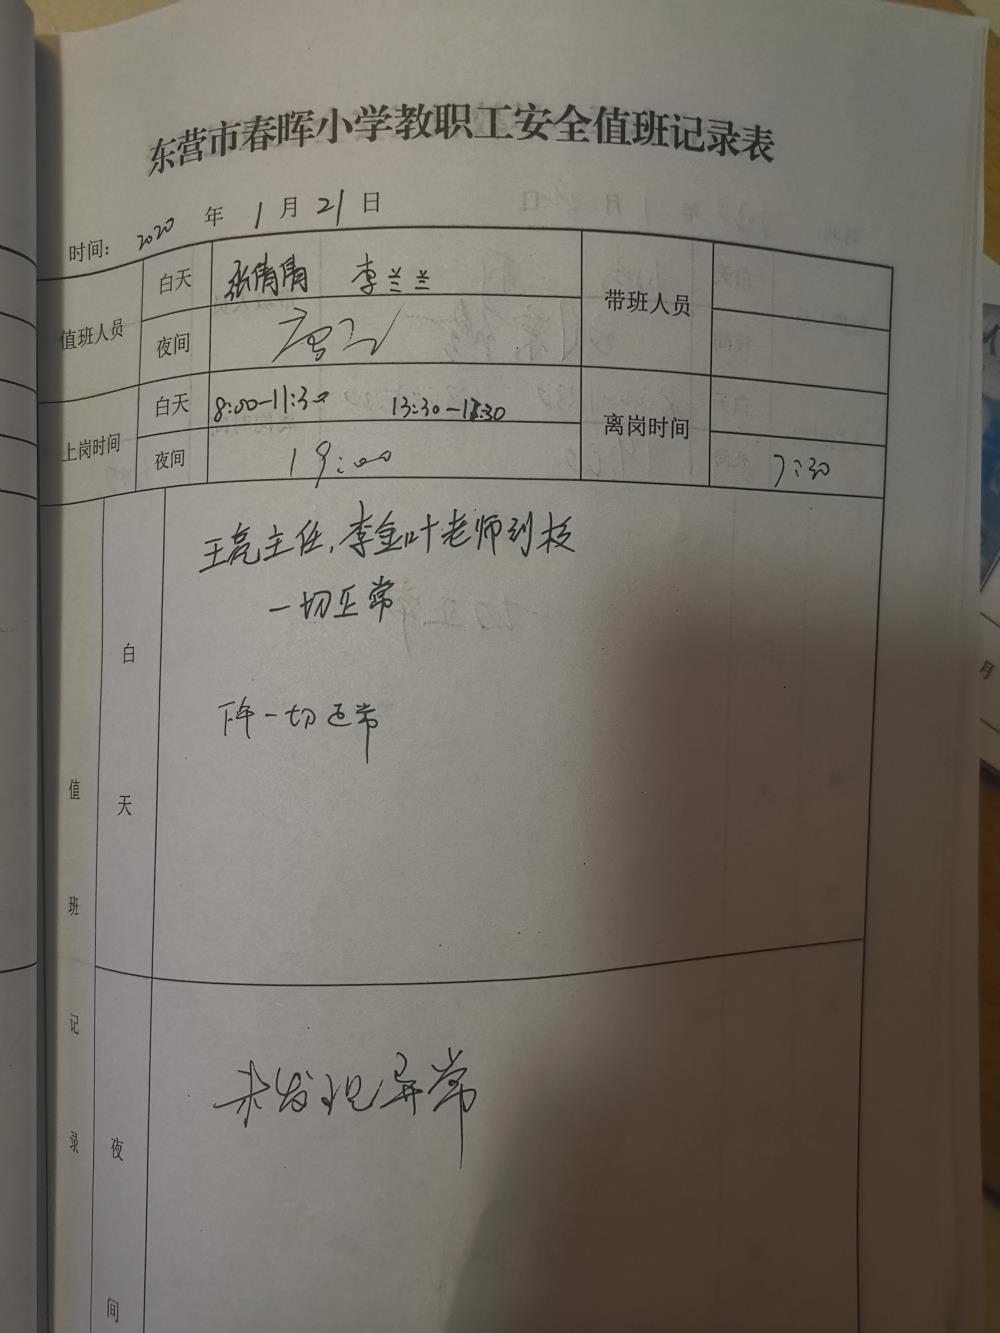 东营市春晖小学教职工安全值班记录表
时间： 2020 年 1 月 21 日
值班人员 白天 张倩倩 李兰兰 带班人员
夜间
上岗时间 白天 8:00-11:30 13:30-17:30 离岗时间
夜间 19:00 7:30
值班记录
白天
王亮主任，李金叶老师到校
一切正常
下午一切正常
夜间
未发现异常
月